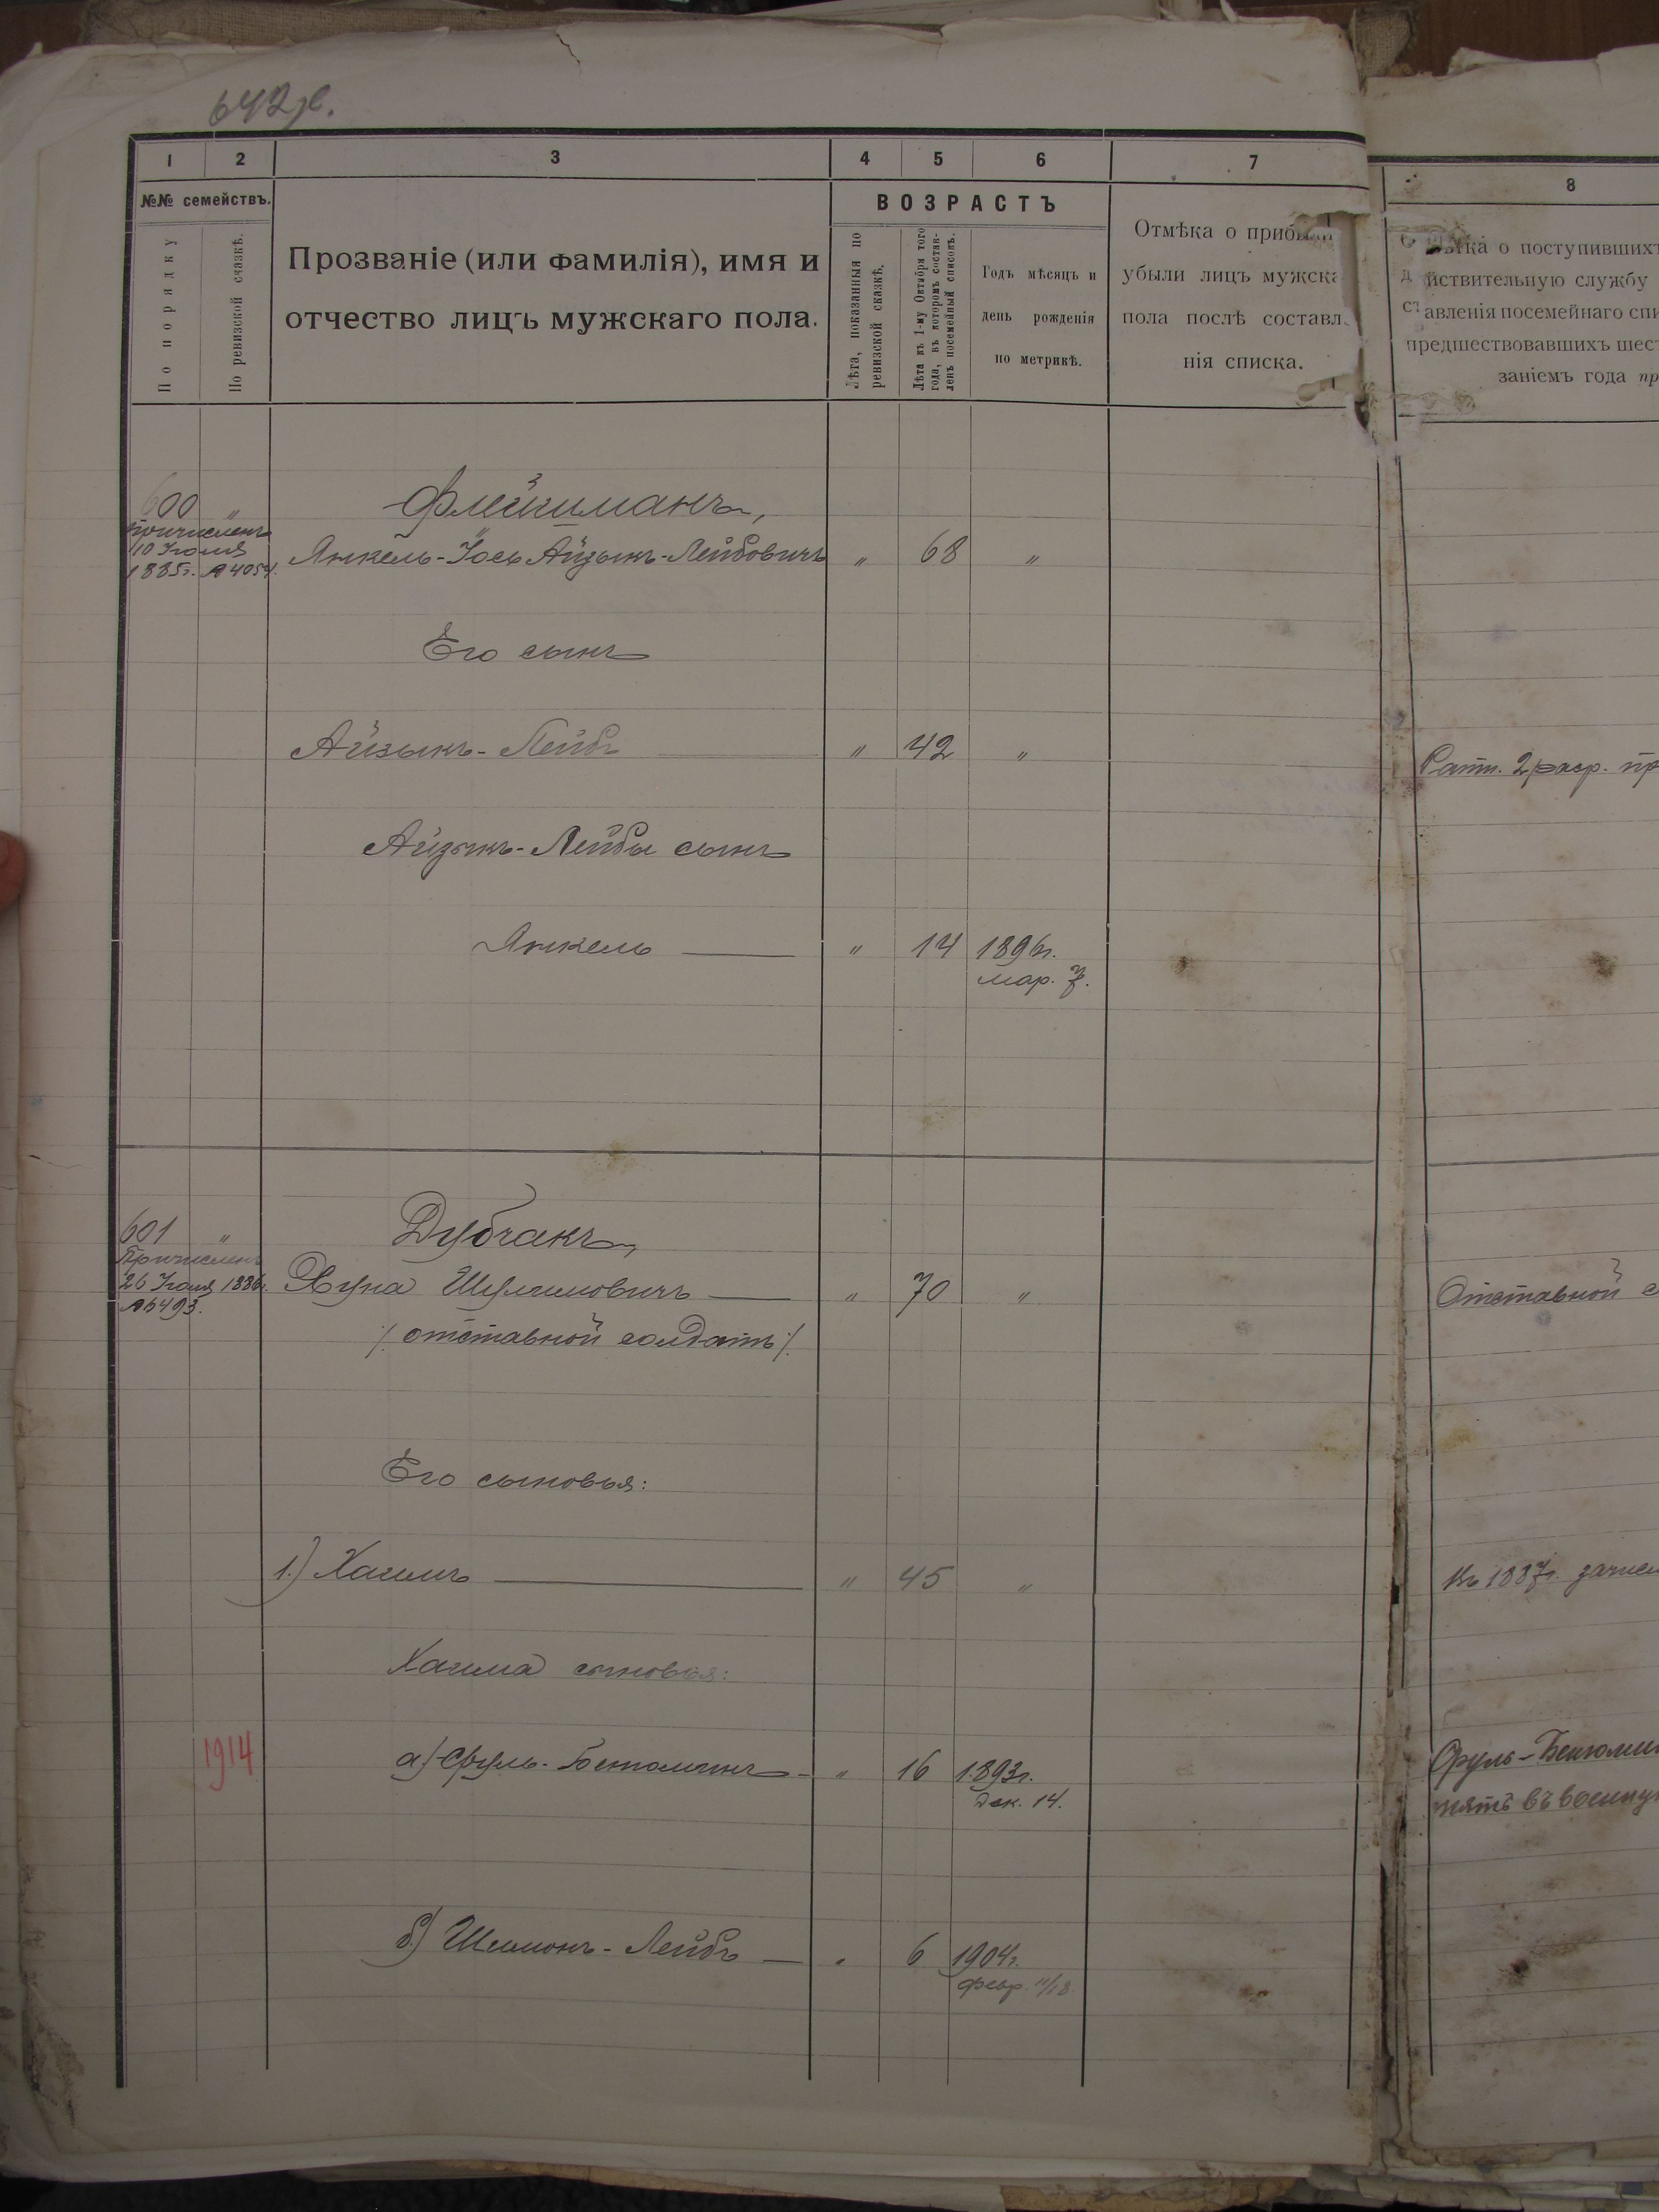 642 об.
1 2 3 4 5 6 7 8
№№ семействъ.
По порядку
По ревизской сказкѣ.
Прозваніе (или фамилія), имя и
отчество лицъ мужскаго пола.
ВОЗРАСТЪ
Лѣта, показанныя по
ревизской сказкѣ.
Лѣта къ 1-му Октября того
года, въ которомъ состав-
ленъ посемейный списокъ.
Годъ мѣсяцъ и
день рожденія
по метрикѣ.
Отмѣка о прибы
убыли лицъ мужска
пола послѣ составл
нія списка.
о поступившихъ
йствительную службу
ставленія посемейнаго спи
предшествовавшихъ шест
заніемъ года пр
600 "
Флейшманъ,
причисленъ
10 Іюля
1885г. № 4054.
Янкель-Іось Айзыкъ-Лейбовичъ " 68 "
Его сынъ
Айзыкъ-Лейбъ " 42 "
Ратн. 2 разр. пр
Айзыкъ-Лейбы сынъ
Янкель " 14 1896г.
мар. 7.
601 "
Дубчакъ,
Причисленъ
26 Іюля 1886г.
№ 5493.
Хуна Шулимовичъ " 70 "
Отставной с
/. отставной солдатъ ./
Его сыновья:
1.) Хаимъ " 45 "
Къ 1887г. зачисл
Хаима сыновья:
1914
а) Сруль-Бенюминъ - " 16 1893г.
дек. 14.
Сруль-Бенюмин
нятъ въ военну
б) Шимонъ-Лейбъ " 6 1904г.
февр. 11/18